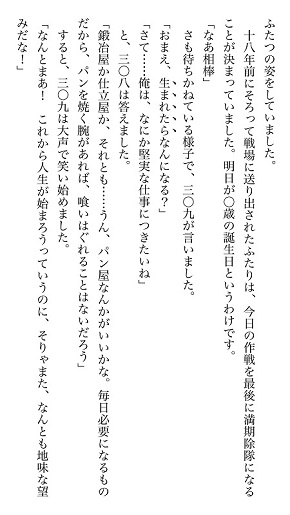 ふたつの姿をしていました。
　十八年前にそろって戦場に送り出されたふたりは、今日の作戦を最後に満期除隊になる
ことが決まっていました。明日が〇歳の誕生日というわけです。
「なあ相棒」
　さも待ちかねている様子で、三〇九が言いました。
「おまえ、生まれたらなんになる？」
「さて……俺は、なにか堅実な仕事につきたいね」
　と、三〇八は答えました。
「鍛冶屋か仕立屋か、それとも……うん、パン屋なんかがいいかな。毎日必要になるもの
だから、パンを焼く腕があれば、喰いはぐれることはないだろう」
　すると、三〇九は大声で笑い始めました。
「なんとまあ！　これから人生が始まろうっていうのに、そりゃまた、なんとも地味な望
みだな！」